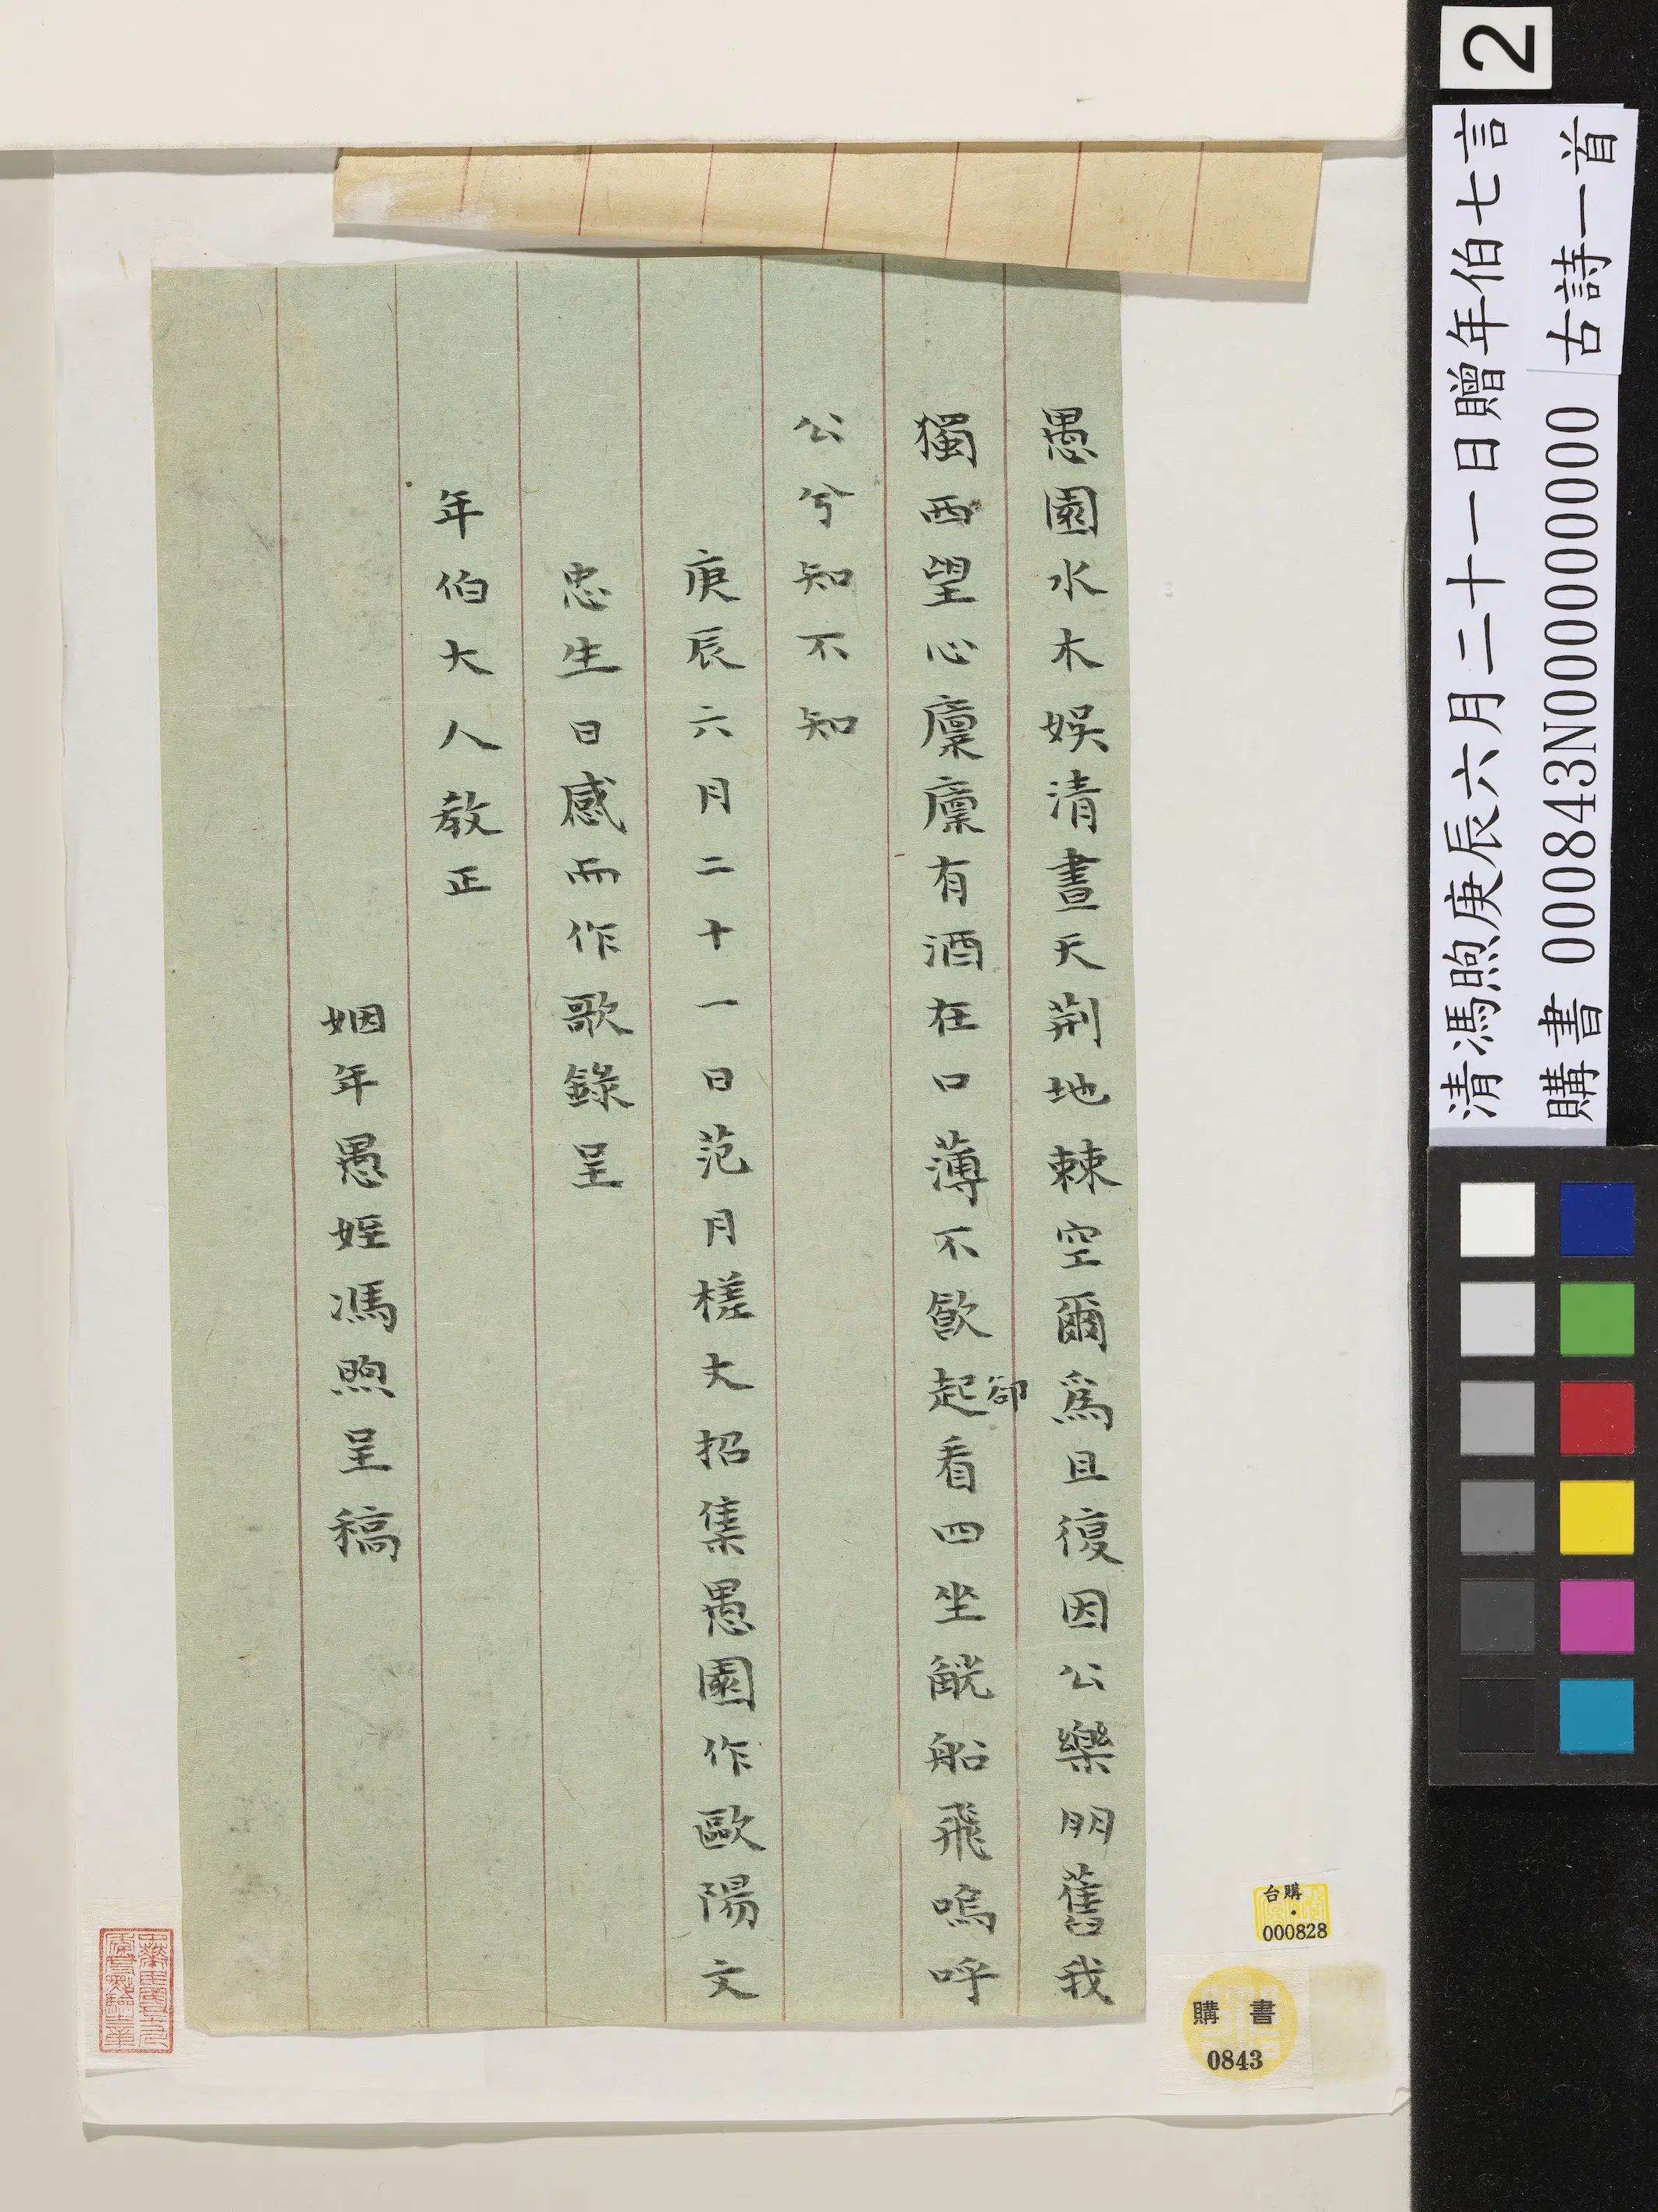 愚園水木娛清晝天荊地棘空爾為且復因公樂朋舊我
獨西望心廩廩有酒在口薄不飲起卻看四坐觥船飛嗚呼
公兮知不知
庚辰六月二十一日范月槎丈招集愚園作歐陽文
忠生日感而作歌錄呈
年伯大人教正
姻年愚姪馮煦呈稿
2
清馮煦庚辰六月二十一日贈年伯七言
古詩一首
購書 000843N000000000
台購
000828
購書
0843